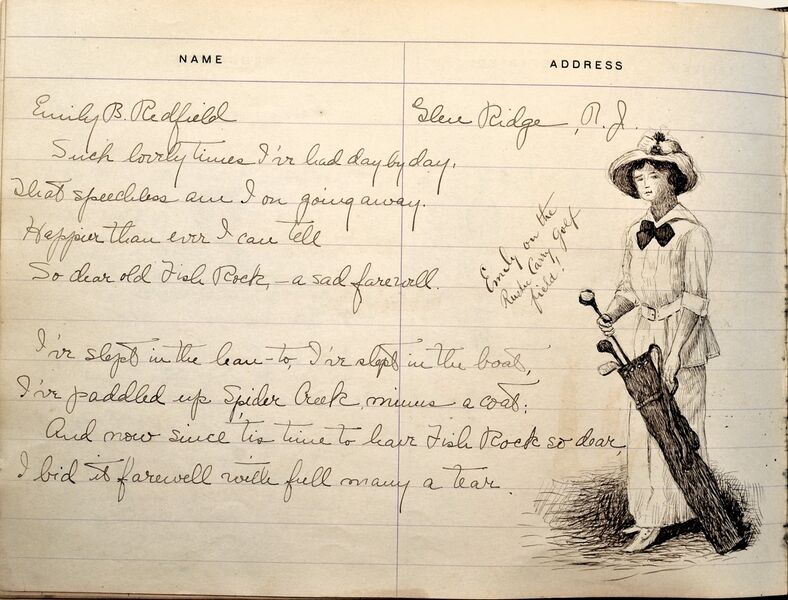 NAME
ADDRESS
Emily B. Redfield
Glen Ridge, N.J.
Such lovely times I've had day by day,
That speechless am I on going away.
Happier than ever I can tell
So dear old Fish Rock, – a sad farewell.
Emily on the
Rustic Carry golf
field!
I've slept in the lean-to, I've slept in the boat,
I've paddled up Spider Creek, minus a coat;
And now since 'tis time to leave Fish Rock so dear,
I bid it farewell with full many a tear.